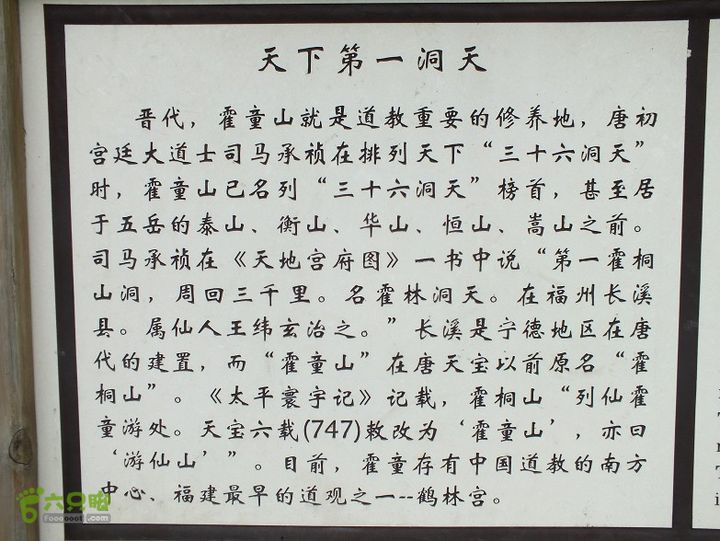 天下第一洞天
晋代，霍童山就是道教重要的修养地，唐初
宫廷大道士司马承祯在排列天下“三十六洞天”
时，霍童山已名列“三十六洞天”榜首，甚至居
于五岳的泰山、衡山、华山、恒山、嵩山之前。
司马承祯在《天地宫府图》一书中说“第一霍桐
山洞，周回三千里。名霍林洞天。在福州长溪
县。属仙人王纬玄治之。”长溪是宁德地区在唐
代的建置，而“霍童山”在唐天宝以前原名“霍
桐山”。《太平寰宇记》记载，霍桐山“列仙霍
童游处。天宝六载(747)敕改为‘霍童山’，亦曰
‘游仙山’”。目前，霍童存有中国道教的南方
中心、福建最早的道观之一--鹤林宫。
六只脚
Foooooot.com